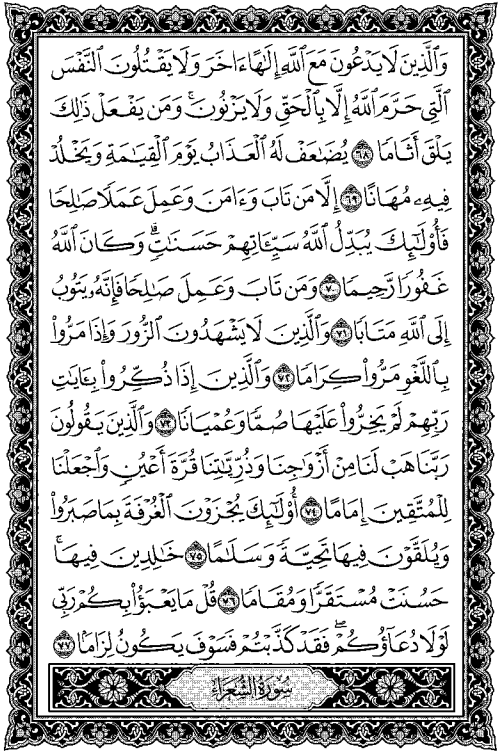 وَٱلَّذِينَ لَا يَدْعُونَ مَعَ ٱللَّهِ إِلَٰهًا ءَاخَرَ وَلَا يَقْتُلُونَ ٱلنَّفْسَ
ٱلَّتِي حَرَّمَ ٱللَّهُ إِلَّا بِٱلْحَقِّ وَلَا يَزْنُونَ ۚ وَمَن يَفْعَلْ ذَٰلِكَ
يَلْقَ أَثَامًا ٦٨ يُضَٰعَفْ لَهُ ٱلْعَذَابُ يَوْمَ ٱلْقِيَٰمَةِ وَيَخْلُدْ
فِيهِۦ مُهَانًا ٦٩ إِلَّا مَن تَابَ وَءَامَنَ وَعَمِلَ عَمَلًا صَٰلِحًا
فَأُو۟لَٰٓئِكَ يُبَدِّلُ ٱللَّهُ سَيِّـَٔاتِهِمْ حَسَنَٰتٍ ۗ وَكَانَ ٱللَّهُ
غَفُورًا رَّحِيمًا ٧٠ وَمَن تَابَ وَعَمِلَ صَٰلِحًا فَإِنَّهُۥ يَتُوبُ
إِلَى ٱللَّهِ مَتَابًا ٧١ وَٱلَّذِينَ لَا يَشْهَدُونَ ٱلزُّورَ وَإِذَا مَرُّوا۟
بِٱللَّغْوِ مَرُّوا۟ كِرَامًا ٧٢ وَٱلَّذِينَ إِذَا ذُكِّرُوا۟ بِـَٔايَٰتِ
رَبِّهِمْ لَمْ يَخِرُّوا۟ عَلَيْهَا صُمًّا وَعُمْيَانًا ٧٣ وَٱلَّذِينَ يَقُولُونَ
رَبَّنَا هَبْ لَنَا مِنْ أَزْوَٰجِنَا وَذُرِّيَّٰتِنَا قُرَّةَ أَعْيُنٍ وَٱجْعَلْنَا
لِلْمُتَّقِينَ إِمَامًا ٧٤ أُو۟لَٰٓئِكَ يُجْزَوْنَ ٱلْغُرْفَةَ بِمَا صَبَرُوا۟
وَيُلَقَّوْنَ فِيهَا تَحِيَّةً وَسَلَٰمًا ٧٥ خَٰلِدِينَ فِيهَا ۚ
حَسُنَتْ مُسْتَقَرًّا وَمُقَامًا ٧٦ قُلْ مَا يَعْبَؤُا۟ بِكُمْ رَبِّي
لَوْلَا دُعَآؤُكُمْ ۖ فَقَدْ كَذَّبْتُمْ فَسَوْفَ يَكُونُ لِزَامًا ٧٧
سُورَةُ الشُّعَرَاءِ